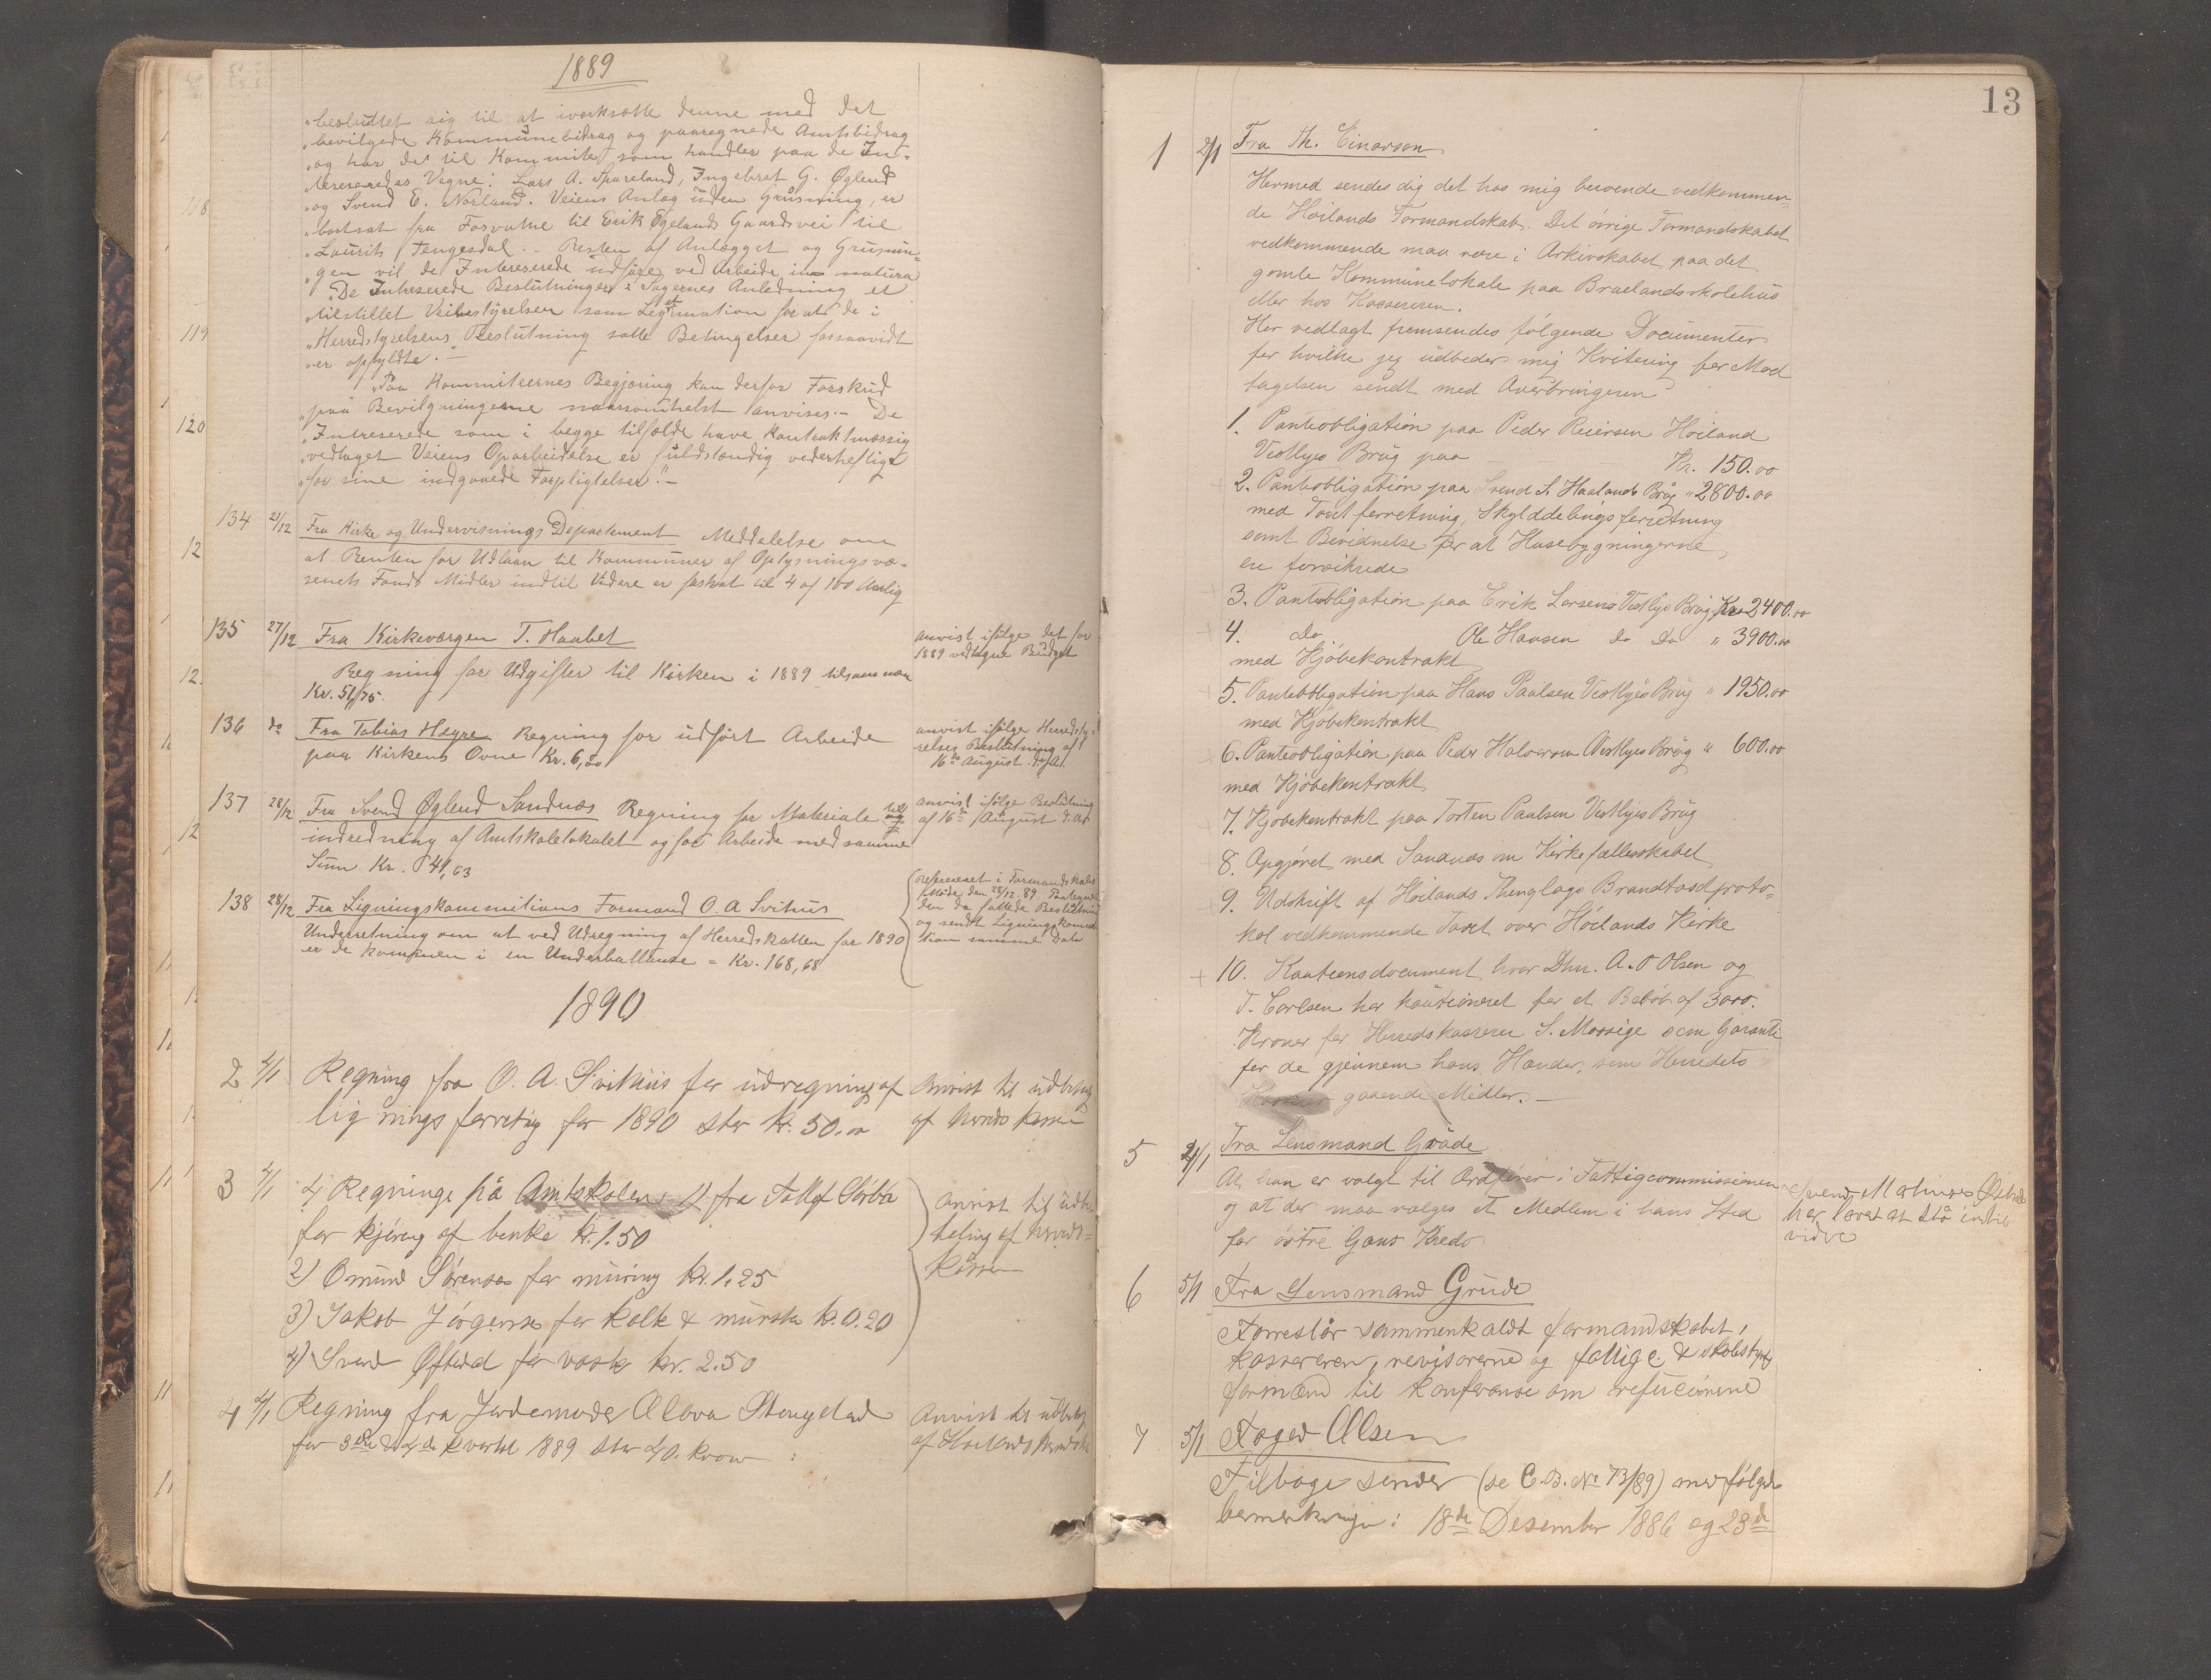 1889
"besluttet sig til at iverksætte denne med det
"bevilgede Kommunebidrag og paaregnede Amtsbidrag
"og har de til Kommite som handler paa de In-
"teresseredes Vegne: Lars A. Spareland, Ingebret G. Øglend
"og Svend E. Norland. Veiens Anlæg uden Grusning, er
"bortsat fra Forvatne til Erik Øgelands Gaardsvei til
"Laurits Tengesdal. - Resten af Anlægget og Grusnin-
"gen vil de Intereserede udføre ved Arbeide in natura
"De Intreserede Beslutninger i Sagernes Anledning er
"tilstillet Veibestyrelsen som Legitimation for at de i
"Herredstyrelsens Beslutning satte Betingelser forsaavidt
"er opfyldte." -
"Paa Kommiteernes Begjøring kan derfor Forskud
"paa Bevilgningerne naarsomhelst anvises. - De
"Intreserede som i begge tilfælde have kontraktmæssig
"vedtaget Veiens Oparbeidelse er fuldstændig vederheftige
"for sine indgaaede Forpligtelser." -
134 21/12 Fra Kirke og Undervisnings Departement Meddelelse om
at Renten for Udlaan til Kommuner af Oplysningsvæ-
senets Fonds Midler indtil Videre er fastsat til 4 af 100 Aarlig
135 27/12 Fra Kirkeværgen T. Haabet
Regning for Udgifter til Kirken i 1889 tilsammen
Kr. 51,75.
anvist ifølge det for
1889 vedtagne Budget
136 do Fra Tobias Høyre Regning for udført Arbeide
paa Kirkens Ovne Kr. 6,20
anvist ifølge Herredsty-
relses Beslutning af
16de August d. A.
137 28/12 Fra Svend Øglend Sandnæs Regning for Materiale til
indredning af Amtskolelokalet og for Arbeide med samme
Sum Kr. 41,63
anvist ifølge Beslutning
af 16de August d. Ar
138 28/12 Fra Ligningskommitions Formand O. A Svihus
Underretning om at ved Udregning af Herredskatten for 1890
er de kommen i en Underballanse = Kr. 168,68
refereret i Formandskabs
Møde den 28/12. 89
den da fattede Beslutning
og sendt Ligningskommi
tion samme Dato
1890
2 2/1 Regning fra O. A. Svihus for udregning af
lignings forretnig for 1890 stor kr. 50.00
Anvist til udbetaling
af herreds kassen
3 4/1 4 Regninge på Amtskolen, 1) fra Tollef Sørbø
for kjøring af benke kr. 1.50
2) Omund Sørensen for muring kr. 1.25
3) Jakob Jørgensen for kalk & mursten kr. 0.20
4) Svend Øftedal for vask kr. 2.50
Anvist til udbe
taling af herreds-
kassen
4 4/1 Regning fra Jordemoder Olava Stangeland
for 3die & 4de kvartal 1889 stor 40. kroner
Anvist til udbetaling
af Høilands herredsk
13
1 2/1 Fra Th. Einarsen
Hermed sendes dig det hos mig beroende vedkommen-
de Høilands Formandskab. Det øvrige Formandskabet
vedkommende maa være i Arkivskabet paa det
gamle Kommunelokale paa Bruelandsskolehus
eller hos Kassereren.
Her vedlagt fremsendes følgende Documenter
for hvilke jeg udbeder mig Kvitering for Mod
tagelsen sendt med Overbringeren
1. Panteobligation paa Peder Reiersen Høiland
Vestlyes Brug paa Kr. 150.00
2. Panteobligation paa Svend S. Haalands Brug " 2800.00
med Taxtforretning, Skylddelingsforretning
samt Bevidnelse for at Husebygningerne
ere forsikrede
3. Panteobligation paa Erik Larsens Vestlys Brug Kr 2400.00
4. Do Ole Hansen do Do " 3900.00
med Kjøbekontrakt
5. Panteobligation paa Hans Paulsen Vestlyes Brug " 1950.00
med Kjøbekontrakt
6. Panteobligation paa Peder Halvorsen Vestlyes Brug " 600.00
med Kjøbekontrakt
7. Kjøbekontrakt paa Torsten Paulsen Vestlyes Brug
8. Opgjøret med Sandnæs om Kirkefællesskabet
9. Udskrift af Høilands Thinglags Brandtaxtproto-
kol vedkommende Taxt over Høilands Kirke
10. Kautionsdocument hvor Dhrr. A. O Olsen og
T. Carlsen har kautioneret for et Beløb af 3000.
Kroner for Herredskasserer S. Mossige som Garanti
for de gjennem hans Hænder, som Herredets
Kasserer gaaende Midler. -
5 4/1 Fra Lensmand Grude
At han er valgt til Ordfører i Fattigcommissionen
og at der maa vælges et Medlem i hans Sted
for østre Gans Kreds
har lovet at stå indtil
videre
6 5/1 Fra Lensmand Grude
Forreslår sammenkaldt formandskabet,
kassereren, revisorerne og fattige & skolestyrets
formænd til konferanse om refucionerne
7 5/1 Foged Olsen
Tilbage sender (se C. B. No 73/89) med følgende
bemerkninger: 18de Desember 1886 og 23de